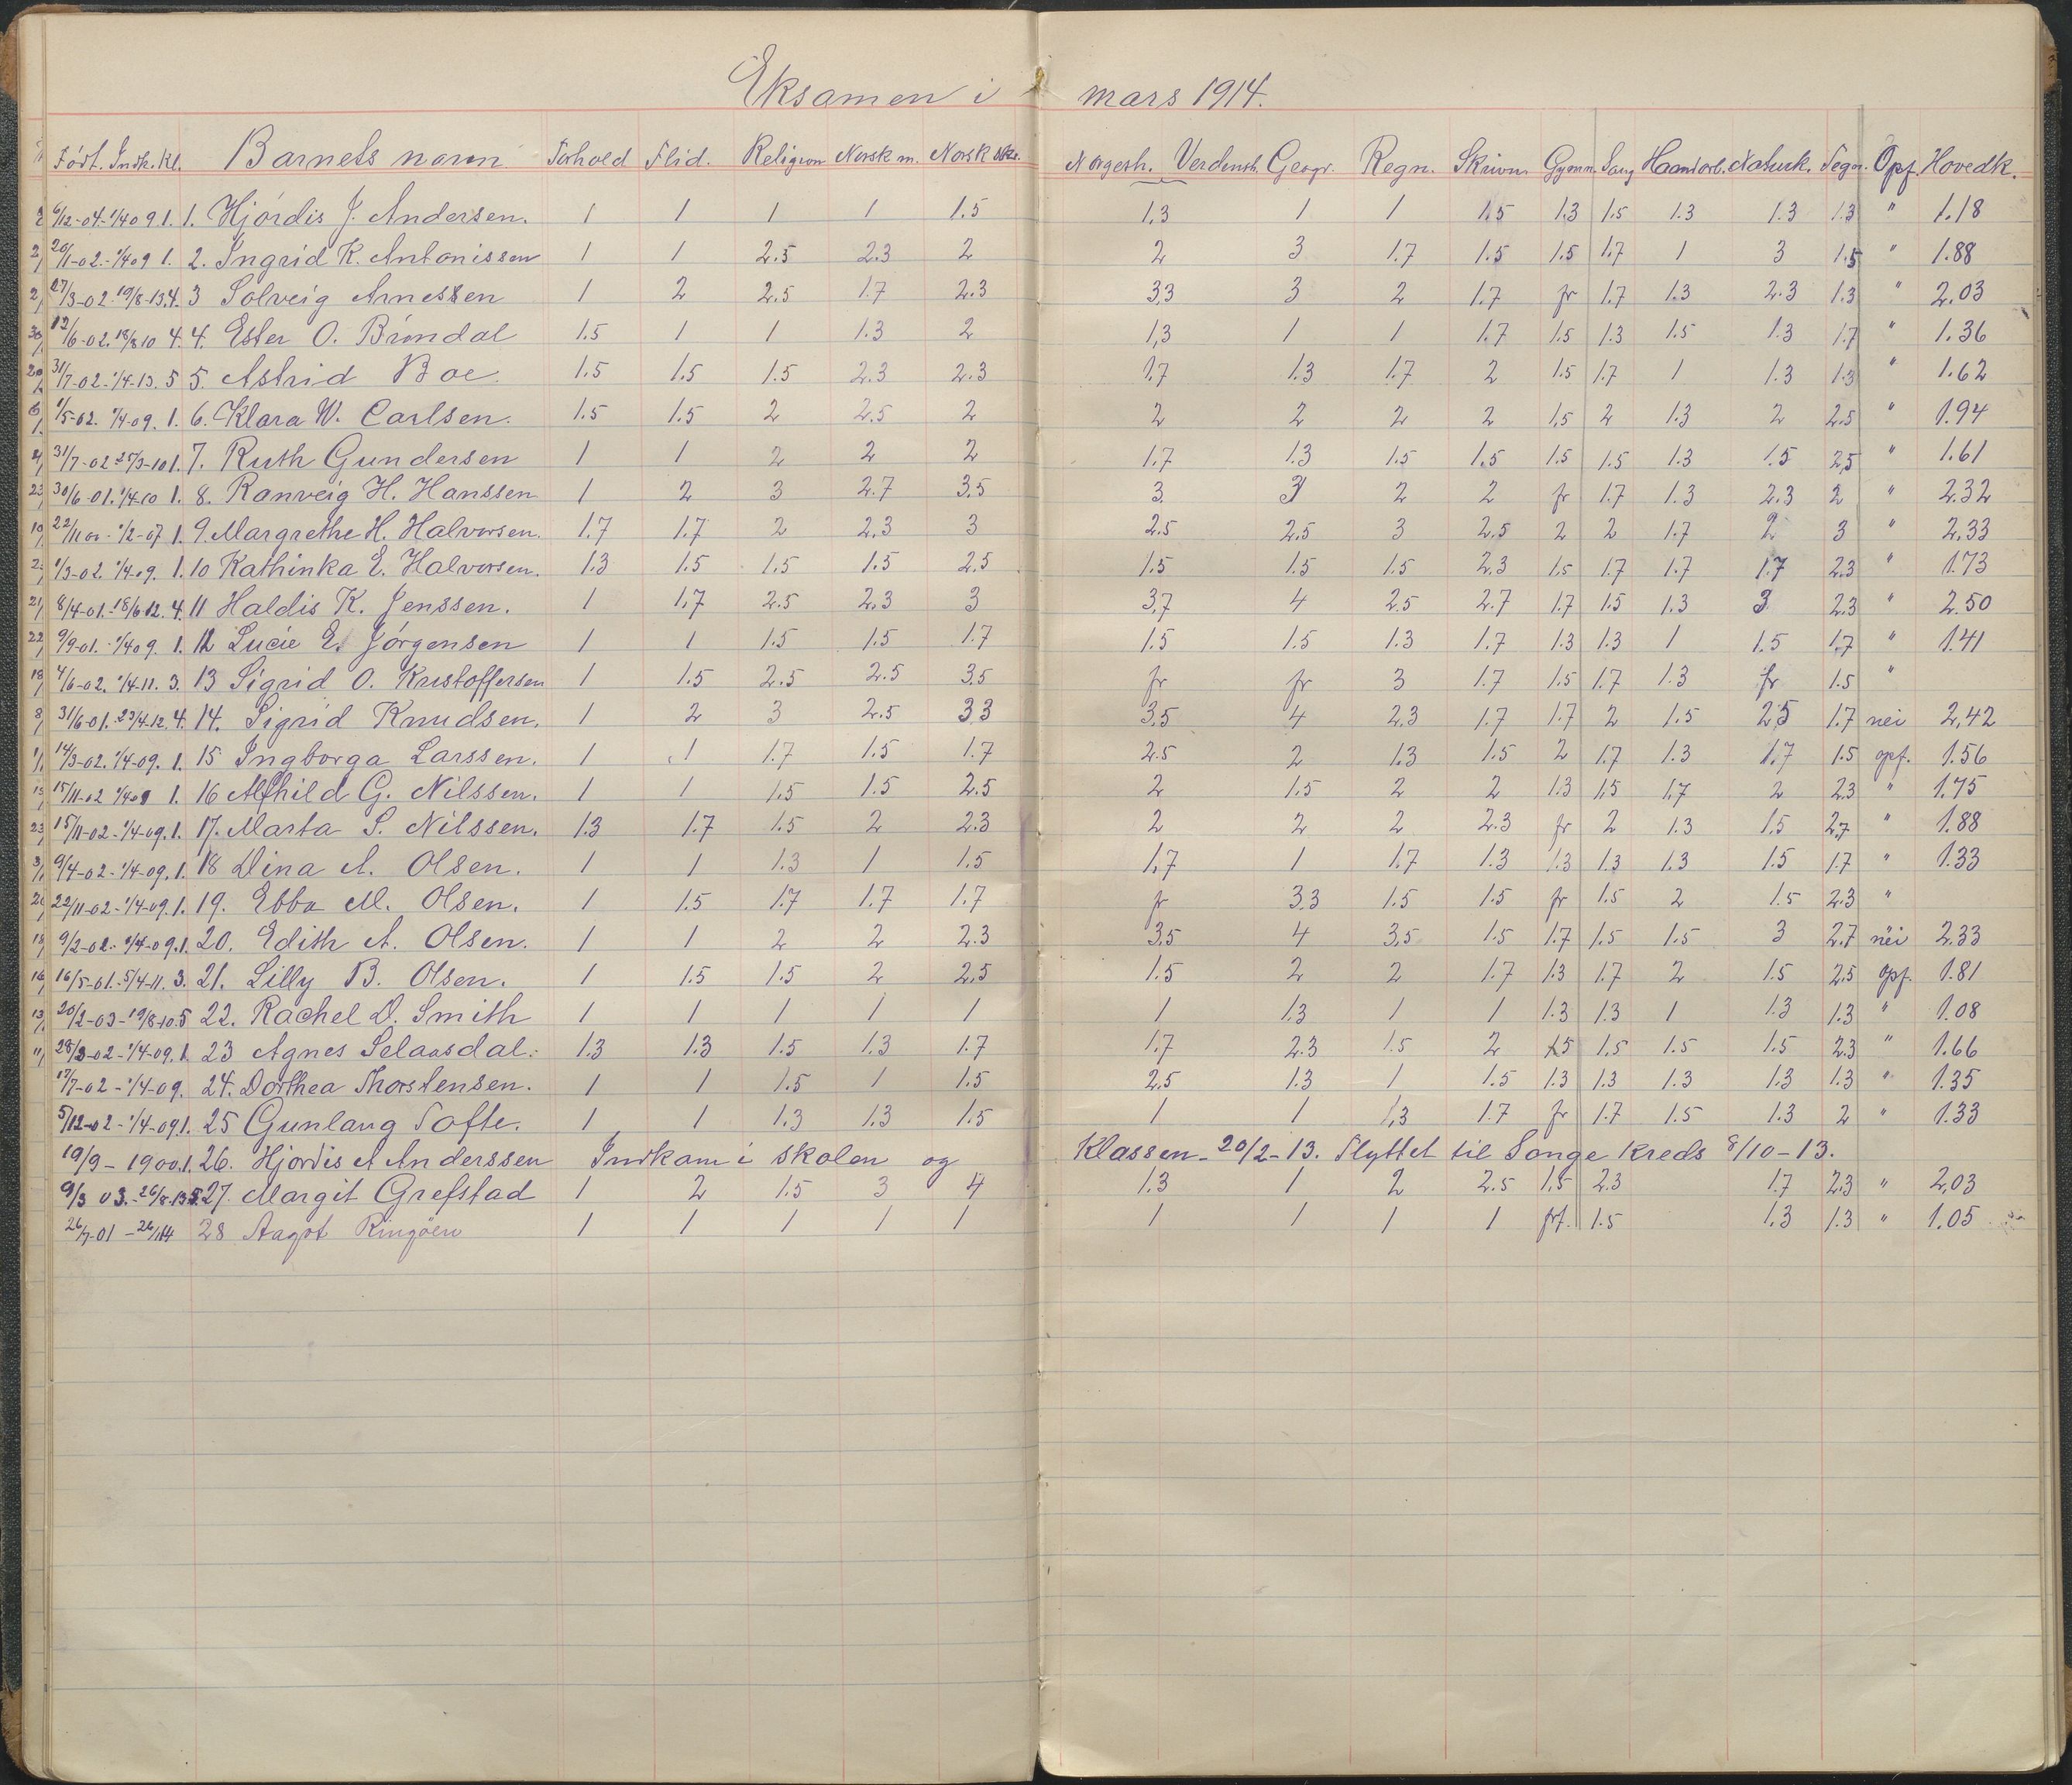 Eksamen i mars 1914.
Født. Indk. Kl. Barnets navn Forhold Flid. Religion Norsk m. Norsk skr. Norgesh. Verdensh. Geogr. Regn. Skrivn. Gymn. Sang Haandarb. Naturk. Tegn. Opf. Hovedk.
6/12-04-1/4 09 1. 1. Hjørdis J. Andersen. 1 1 1 1 1.5 1.3 1 1 1.5 1.3 1.5 1.3 1.3 1.3 " 1.18
20/1-02.-1/4 09 1. 2. Ingrid K. Antonissen 1 1 2.5 2.3 2 2 3 1.7 1.5 1.5 1.7 1 3 1.5 " 1.88
27/3-02.19/8-13.4. 3 Solveig Arnessen 1 2 2.5 1.7 2.3 3.3 3 2 1.7 fr 1.7 1.3 2.3 1.3 " 2.03
12/6-02.18/8 10 4. 4. Ester O. Brøndal 1.5 1 1 1.3 2 1,3 1 1 1.7 1.5 1.3 1.5 1.3 1.7 " 1.36
31/7-02.-1/4-13. 5 5. Astrid Boe. 1.5 1.5 1.5 2.3 2.3 1.7 1.3 1.7 2 1.5 1.7 1 1.3 1.3 " 1.62
1/5-02. 1/4-09. 1. 6. Klara W. Carlsen. 1.5 1.5 2 2.5 2 2 2 2 2 1,5 2 1.3 2 2.5 " 1.94
31/7-02 27/3-10 1. 7. Ruth Gundersen 1 1 2 2 2 1.7 1.3 1.5 1.5 1.5 1.5 1.3 1.5 2.5 " 1.61
30/6-01. 1/4-10 1. 8. Ranveig H. Hanssen 1 2 3 2.7 3.5 3 3 2 2 fr 1.7 1.3 2.3 2 " 2.32
22/11 00-1/2-07 1. 9. Margrethe H. Halvorsen. 1.7 1.7 2 2.3 3 2.5 2.5 3 2.5 2 2 1.7 2 3 " 2.33
1/3-02. 1/4 09. 1. 10 Kathinka E. Halvorsen. 1.3 1.5 1.5 1.5 2.5 1.5 1.5 1.5 2.3 1.5 1.7 1.7 1.7 2.3 " 1.73
8/4-01.-18/6 12. 4. 11 Haldis K. Jenssen. 1 1.7 2.5 2.3 3 3,7 4 2.5 2.7 1.7 1.5 1.3 3 2.3 " 2.50
9/9-01.-1/4 09. 1. 12 Lucie E. Jørgensen 1 1 1.5 1.5 1.7 1.5 1.5 1.3 1.7 1.3 1.3 1 1.5 1.7 " 1.41
4/6-02. 1/4-11. 3. 13 Sigrid O. Kristoffersen 1 1.5 2.5 2.5 3.5 fr fr 3 1.7 1.5 1.7 1.3 fr 1.5 "
31/6-01. 23/4-12. 4. 14. Sigrid Knudsen. 1 2 3 2.5 3.3 3.5 4 2.3 1.7 1.7 2 1.5 2.5 1.7 nei 2,42
14/3-02. 1/4-09. 1. 15 Ingborga Larssen. 1 1 1.7 1.5 1.7 2.5 2 1.3 1.5 2 1.7 1.3 1.7 1.5 opf. 1.56
15/11-02 1/4 09 1. 16 Alfhild G. Nilssen. 1 1 1.5 1.5 2.5 2 1.5 2 2 1.3 1.5 1.7 2 2.3 " 1.75
15/11-02-1/4-09. 1. 17. Marta S. Nilssen. 1.3 1.7 1.5 2 2.3 2 2 2 2.3 fr 2 1.3 1.5 2.7 " 1.88
9/4-02-1/4-09. 1. 18 Dina A. Olsen. 1 1 1.3 1 1.5 1.7 1 1.7 1.3 1.3 1.3 1.3 1.5 1.7 " 1.33
22/11-02-1/4-09. 1. 19. Ebba M. Olsen. 1 1.5 1.7 1.7 1.7 fr 3.3 1.5 1.5 fr 1.5 2 1.5 2.3 "
9/2-02.-1/4-09. 1. 20. Edith A. Olsen. 1 1 2 2 2.3 3.5 4 3,5 1.5 1.7 1.5 1.5 3 2.7 nei 2.33
16/5-01.-5/4-11. 3. 21. Lilly B. Olsen. 1 1.5 1.5 2 2.5 1.5 2 2 1.7 1.3 1.7 2 1.5 2.5 opf. 1.81
20/2-03-19/8-10.5 22. Rachel D. Smith 1 1 1 1 1 1 1.3 1 1 1.3 1.3 1 1.3 1.3 " 1.08
28/3-02-1/4-09. 1. 23 Agnes Selaasdal. 1.3 1.3 1.5 1.3 1.7 1.7 2.3 1.5 2 1.5 1.5 1.5 1.5 2.3 " 1.66
17/7-02-1/4-09. 24. Dorthea Thorstensen. 1 1 1.5 1 1.5 2.5 1.3 1 1.5 1.3 1.3 1.3 1.3 1.3 " 1.35
5/12-02-1/4-09 1. 25 Gunlaug Tofte. 1 1 1.3 1.3 1.5 1 1 1,3 1.7 fr 1.7 1.5 1.3 2 " 1.33
19/9-1900. 1. 26. Hjørdis A Anderssen Indkam i skolen og Klassen - 20/2-13. Flyttet til Songe kreds 8/10-13.
9/3 03.-26/8-13 5. 27. Margit Grefstad 1 2 1.5 3 4 1.3 1 2 2.5 1,5 2.3 1.7 2.3 " 2,03
26/7-01-26/1 14 28 Aagot Ringøen 1 1 1 1 1 1 1 1 1 frf. 1.5 1.3 1.3 " 1.05